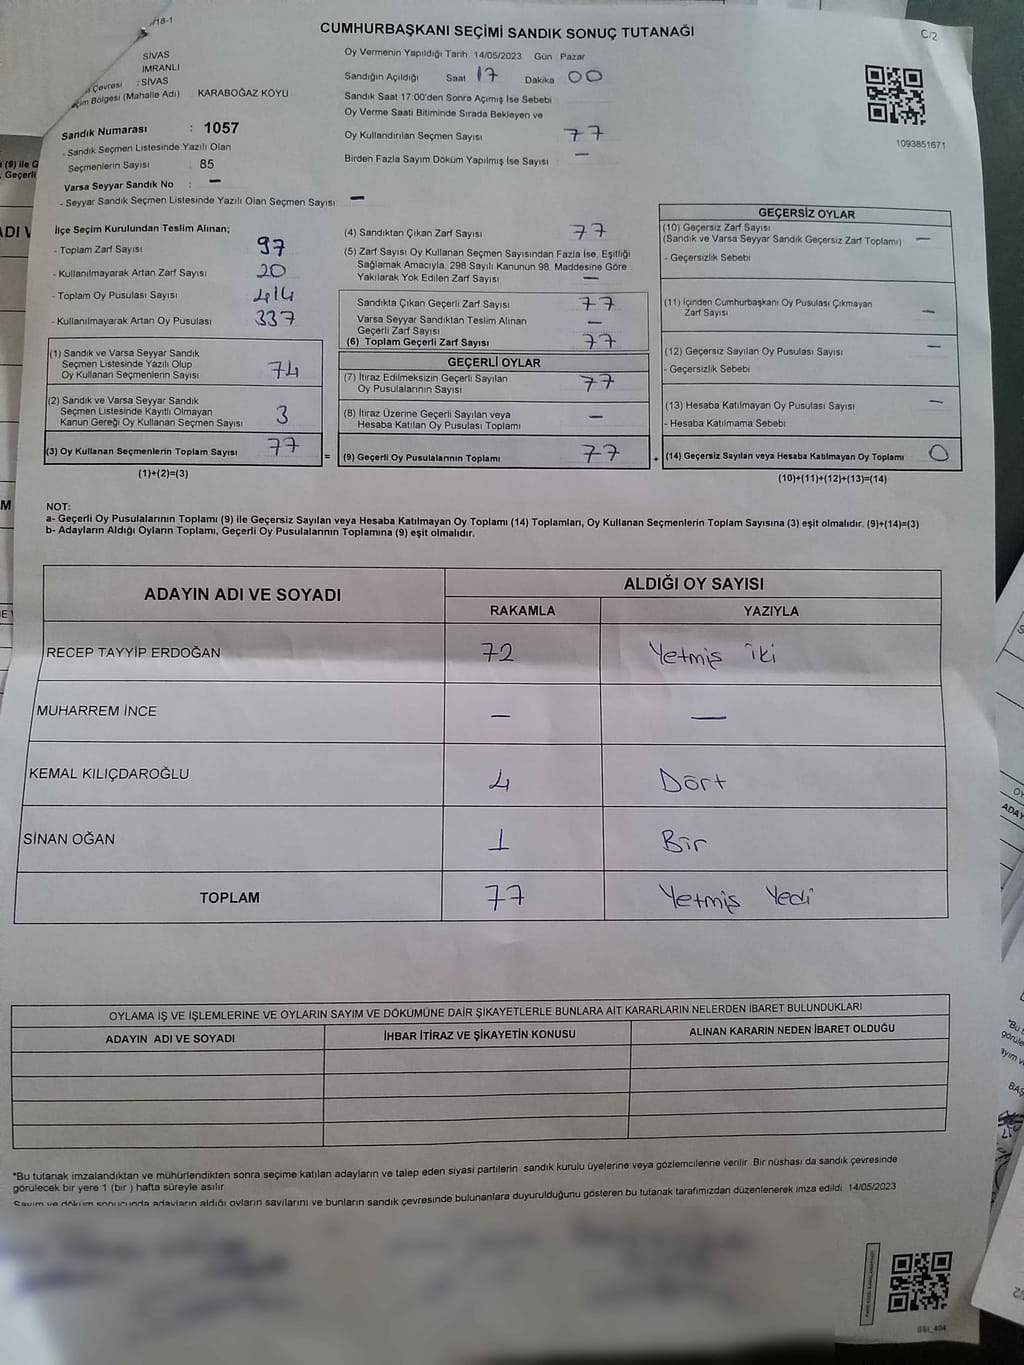 /18-1
CUMHURBAŞKANI SEÇİMİ SANDIK SONUÇ TUTANAĞI
C/2
SİVAS
İMRANLI
Çevresi : SİVAS
Bölgesi (Mahalle Adı) KARABOĞAZ KÖYÜ
Sandık Numarası : 1057
- Sandık Seçmen Listesinde Yazılı Olan
Seçmenlerin Sayısı : 85
Varsa Seyyar Sandık No : –
- Seyyar Sandık Seçmen Listesinde Yazılı Olan Seçmen Sayısı –
Oy Vermenin Yapıldığı Tarih 14/05/2023 Gün Pazar
Sandığın Açıldığı Saat 17 Dakika 00
Sandık Saat 17:00'den Sonra Açımış İse Sebebi
Oy Verme Saati Bitiminde Sırada Bekleyen ve
Oy Kullandırılan Seçmen Sayısı 77
Birden Fazla Sayım Döküm Yapılmış İse Sayısı –
1093851671
İlçe Seçim Kurulundan Teslim Alınan;
- Toplam Zarf Sayısı 97
- Kullanılmayarak Artan Zarf Sayısı 20
- Toplam Oy Pusulası Sayısı 414
- Kullanılmayarak Artan Oy Pusulası 337
(1) Sandık ve Varsa Seyyar Sandık
Seçmen Listesinde Yazılı Olup
Oy Kullanan Seçmenlerin Sayısı 74
(2) Sandık ve Varsa Seyyar Sandık
Seçmen Listesinde Kayıtlı Olmayan
Kanun Gereği Oy Kullanan Seçmen Sayısı 3
(3) Oy Kullanan Seçmenlerin Toplam Sayısı 77
(1)+(2)=(3)
=
(4) Sandıktan Çıkan Zarf Sayısı 77
(5) Zarf Sayısı Oy Kullanan Seçmen Sayısından Fazla İse, Eşitliği
Sağlamak Amacıyla, 298 Sayılı Kanunun 98. Maddesine Göre
Yakılarak Yok Edilen Zarf Sayısı –
Sandıkta Çıkan Geçerli Zarf Sayısı 77
Varsa Seyyar Sandıktan Teslim Alınan
Geçerli Zarf Sayısı –
(6) Toplam Geçerli Zarf Sayısı 77
GEÇERLİ OYLAR
(7) İtiraz Edilmeksizin Geçerli Sayılan
Oy Pusulalarının Sayısı 77
(8) İtiraz Üzerine Geçerli Sayılan veya
Hesaba Katılan Oy Pusulaları Toplamı –
(9) Geçerli Oy Pusulalarının Toplamı 77
+
GEÇERSİZ OYLAR
(10) Geçersiz Zarf Sayısı
(Sandık ve Varsa Seyyar Sandık Geçersiz Zarf Toplamı) –
- Geçersizlik Sebebi
(11) İçinden Cumhurbaşkanı Oy Pusulası Çıkmayan
Zarf Sayısı –
(12) Geçersiz Sayılan Oy Pusulası Sayısı –
- Geçersizlik Sebebi
(13) Hesaba Katılmayan Oy Pusulası Sayısı –
- Hesaba Katılmama Sebebi
(14) Geçersiz Sayılan veya Hesaba Katılmayan Oy Toplamı 0
(10)+(11)+(12)+(13)=(14)
NOT:
a- Geçerli Oy Pusulalarının Toplamı (9) ile Geçersiz Sayılan veya Hesaba Katılmayan Oy Toplamı (14) Toplamları, Oy Kullanan Seçmenlerin Toplam Sayısına (3) eşit olmalıdır. (9)+(14)=(3)
b- Adayların Aldığı Oyların Toplamı, Geçerli Oy Pusulalarının Toplamına (9) eşit olmalıdır.
ADAYIN ADI VE SOYADI ALDIĞI OY SAYISI
RAKAMLA YAZIYLA
RECEP TAYYİP ERDOĞAN 72 Yetmiş iki
MUHARREM İNCE – –
KEMAL KILIÇDAROĞLU 4 Dört
SİNAN OĞAN 1 Bir
TOPLAM 77 Yetmiş Yedi
OYLAMA İŞ VE İŞLEMLERİNE VE OYLARIN SAYIM VE DÖKÜMÜNE DAİR ŞİKAYETLERLE BUNLARA AİT KARARLARIN NELERDEN İBARET BULUNDUKLARI
ADAYIN ADI VE SOYADI İHBAR İTİRAZ VE ŞİKAYETİN KONUSU ALINAN KARARIN NEDEN İBARET OLDUĞU
*Bu tutanak imzalandıktan ve mühürlendikten sonra seçime katılan adayların ve talep eden siyasi partilerin sandık kurulu üyelerine veya gözlemcilerine verilir. Bir nüshası da sandık çevresinde
görülecek bir yere 1 (bir ) hafta süreyle asılır.
Sayım ve döküm sonucunda adayların aldığı oyların sayılarını ve bunların sandık çevresinde bulunanlara duyurulduğunu gösteren bu tutanak tarafımızdan düzenlenerek imza edildi. 14/05/2023